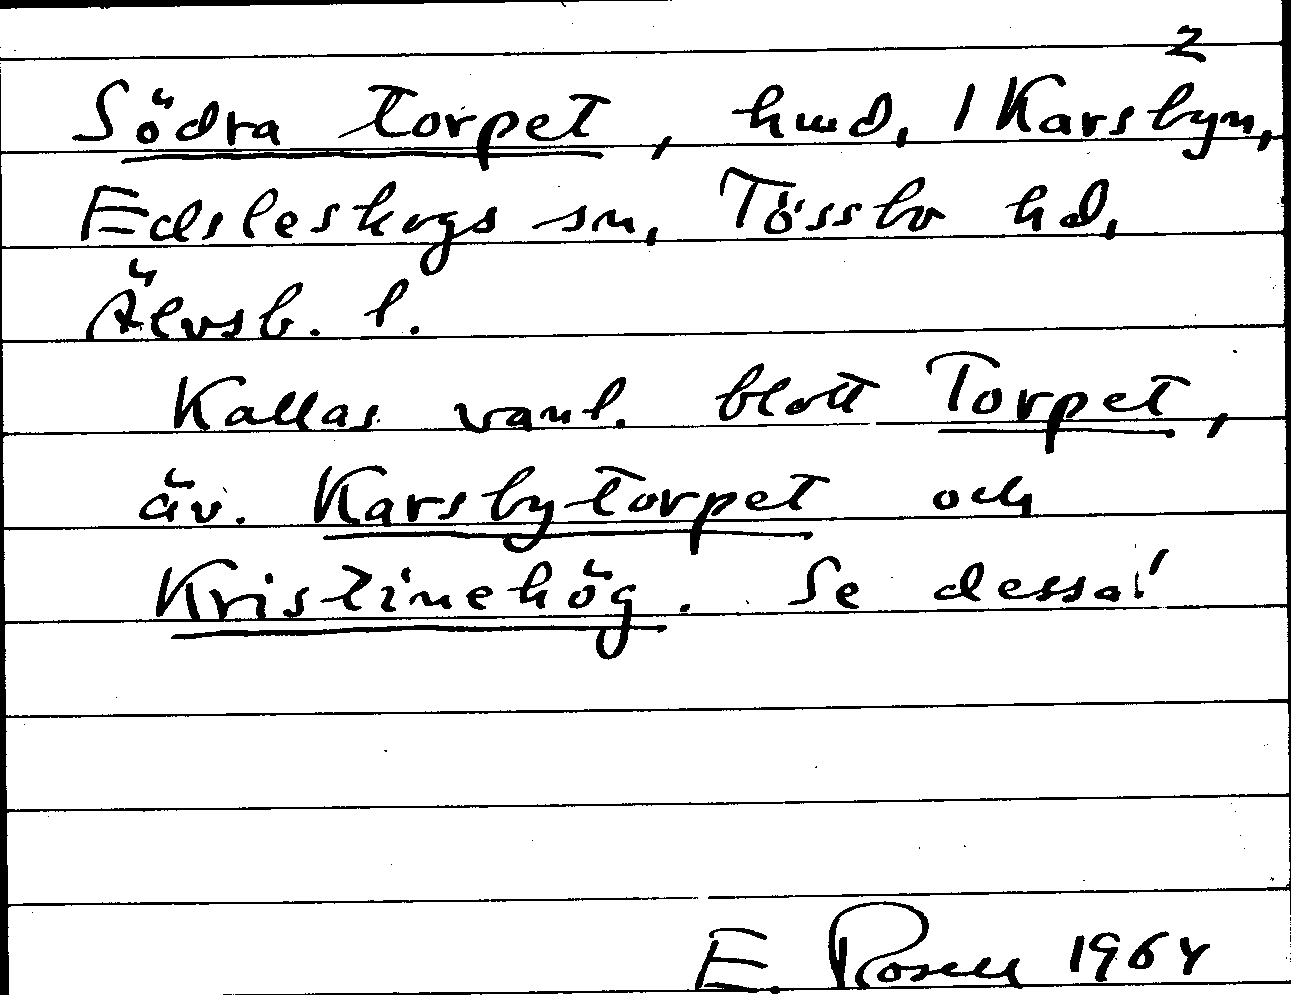 2
Södra torpet, hmd, 1 Karsbyn,
Edsleskogs sn, Tössbo hd,
Älvsb. l.
Kallas vanl. blott Torpet,
äv. Karsbytorpet och
Kristinehög. Se dessa!
E. Rosell 1964